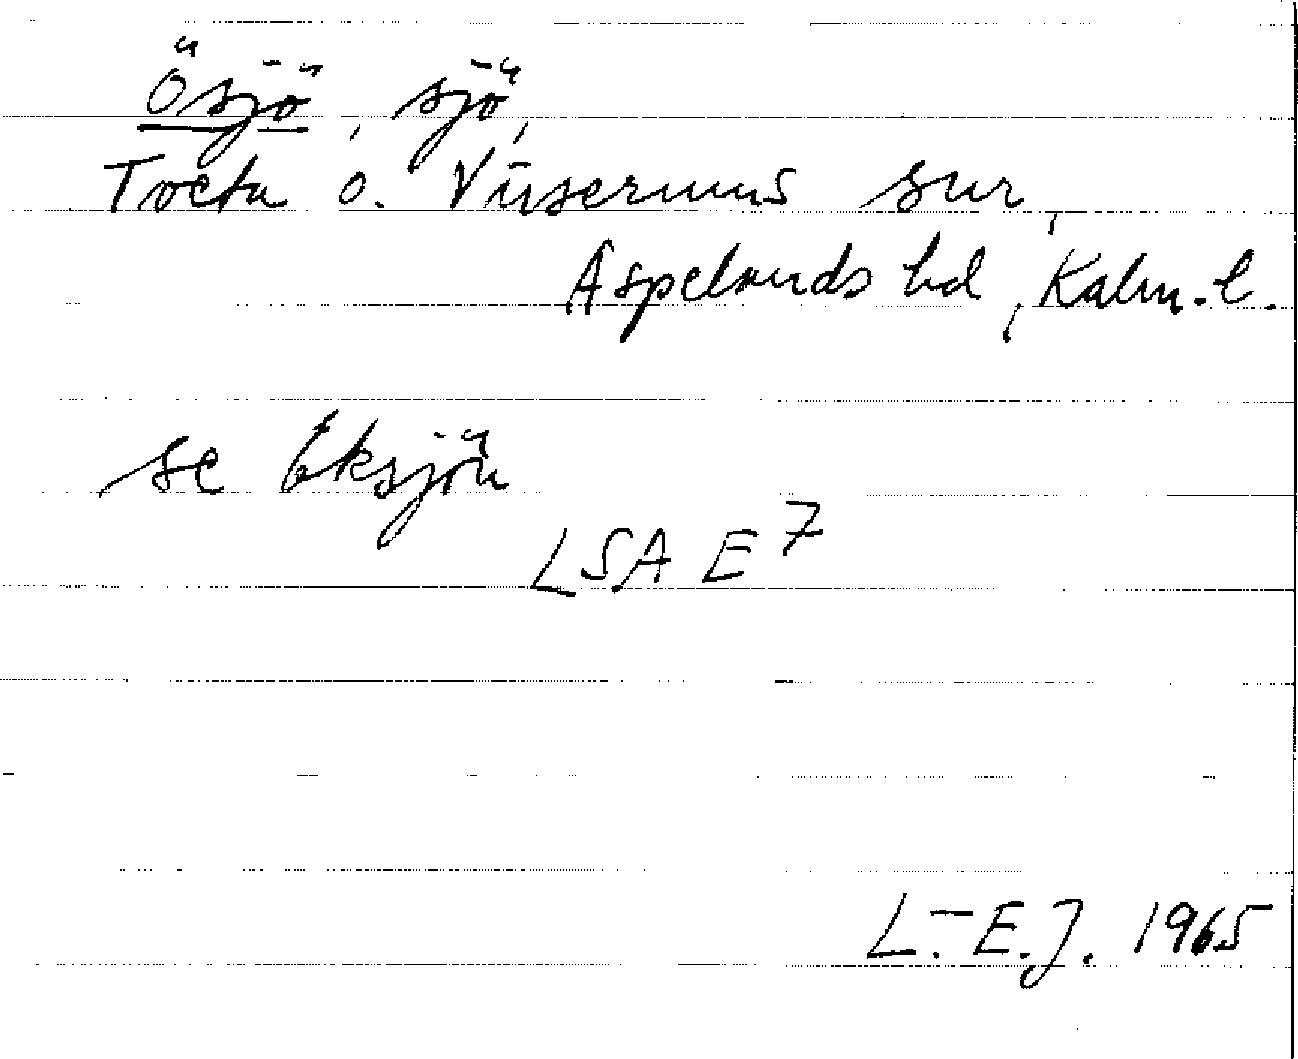 Ösjö, sjö,
Tveta o. Virserums snr,
Aspelands hd, Kalm. l.
se Eksjön
LSA E 7
L.-E.J. 1965